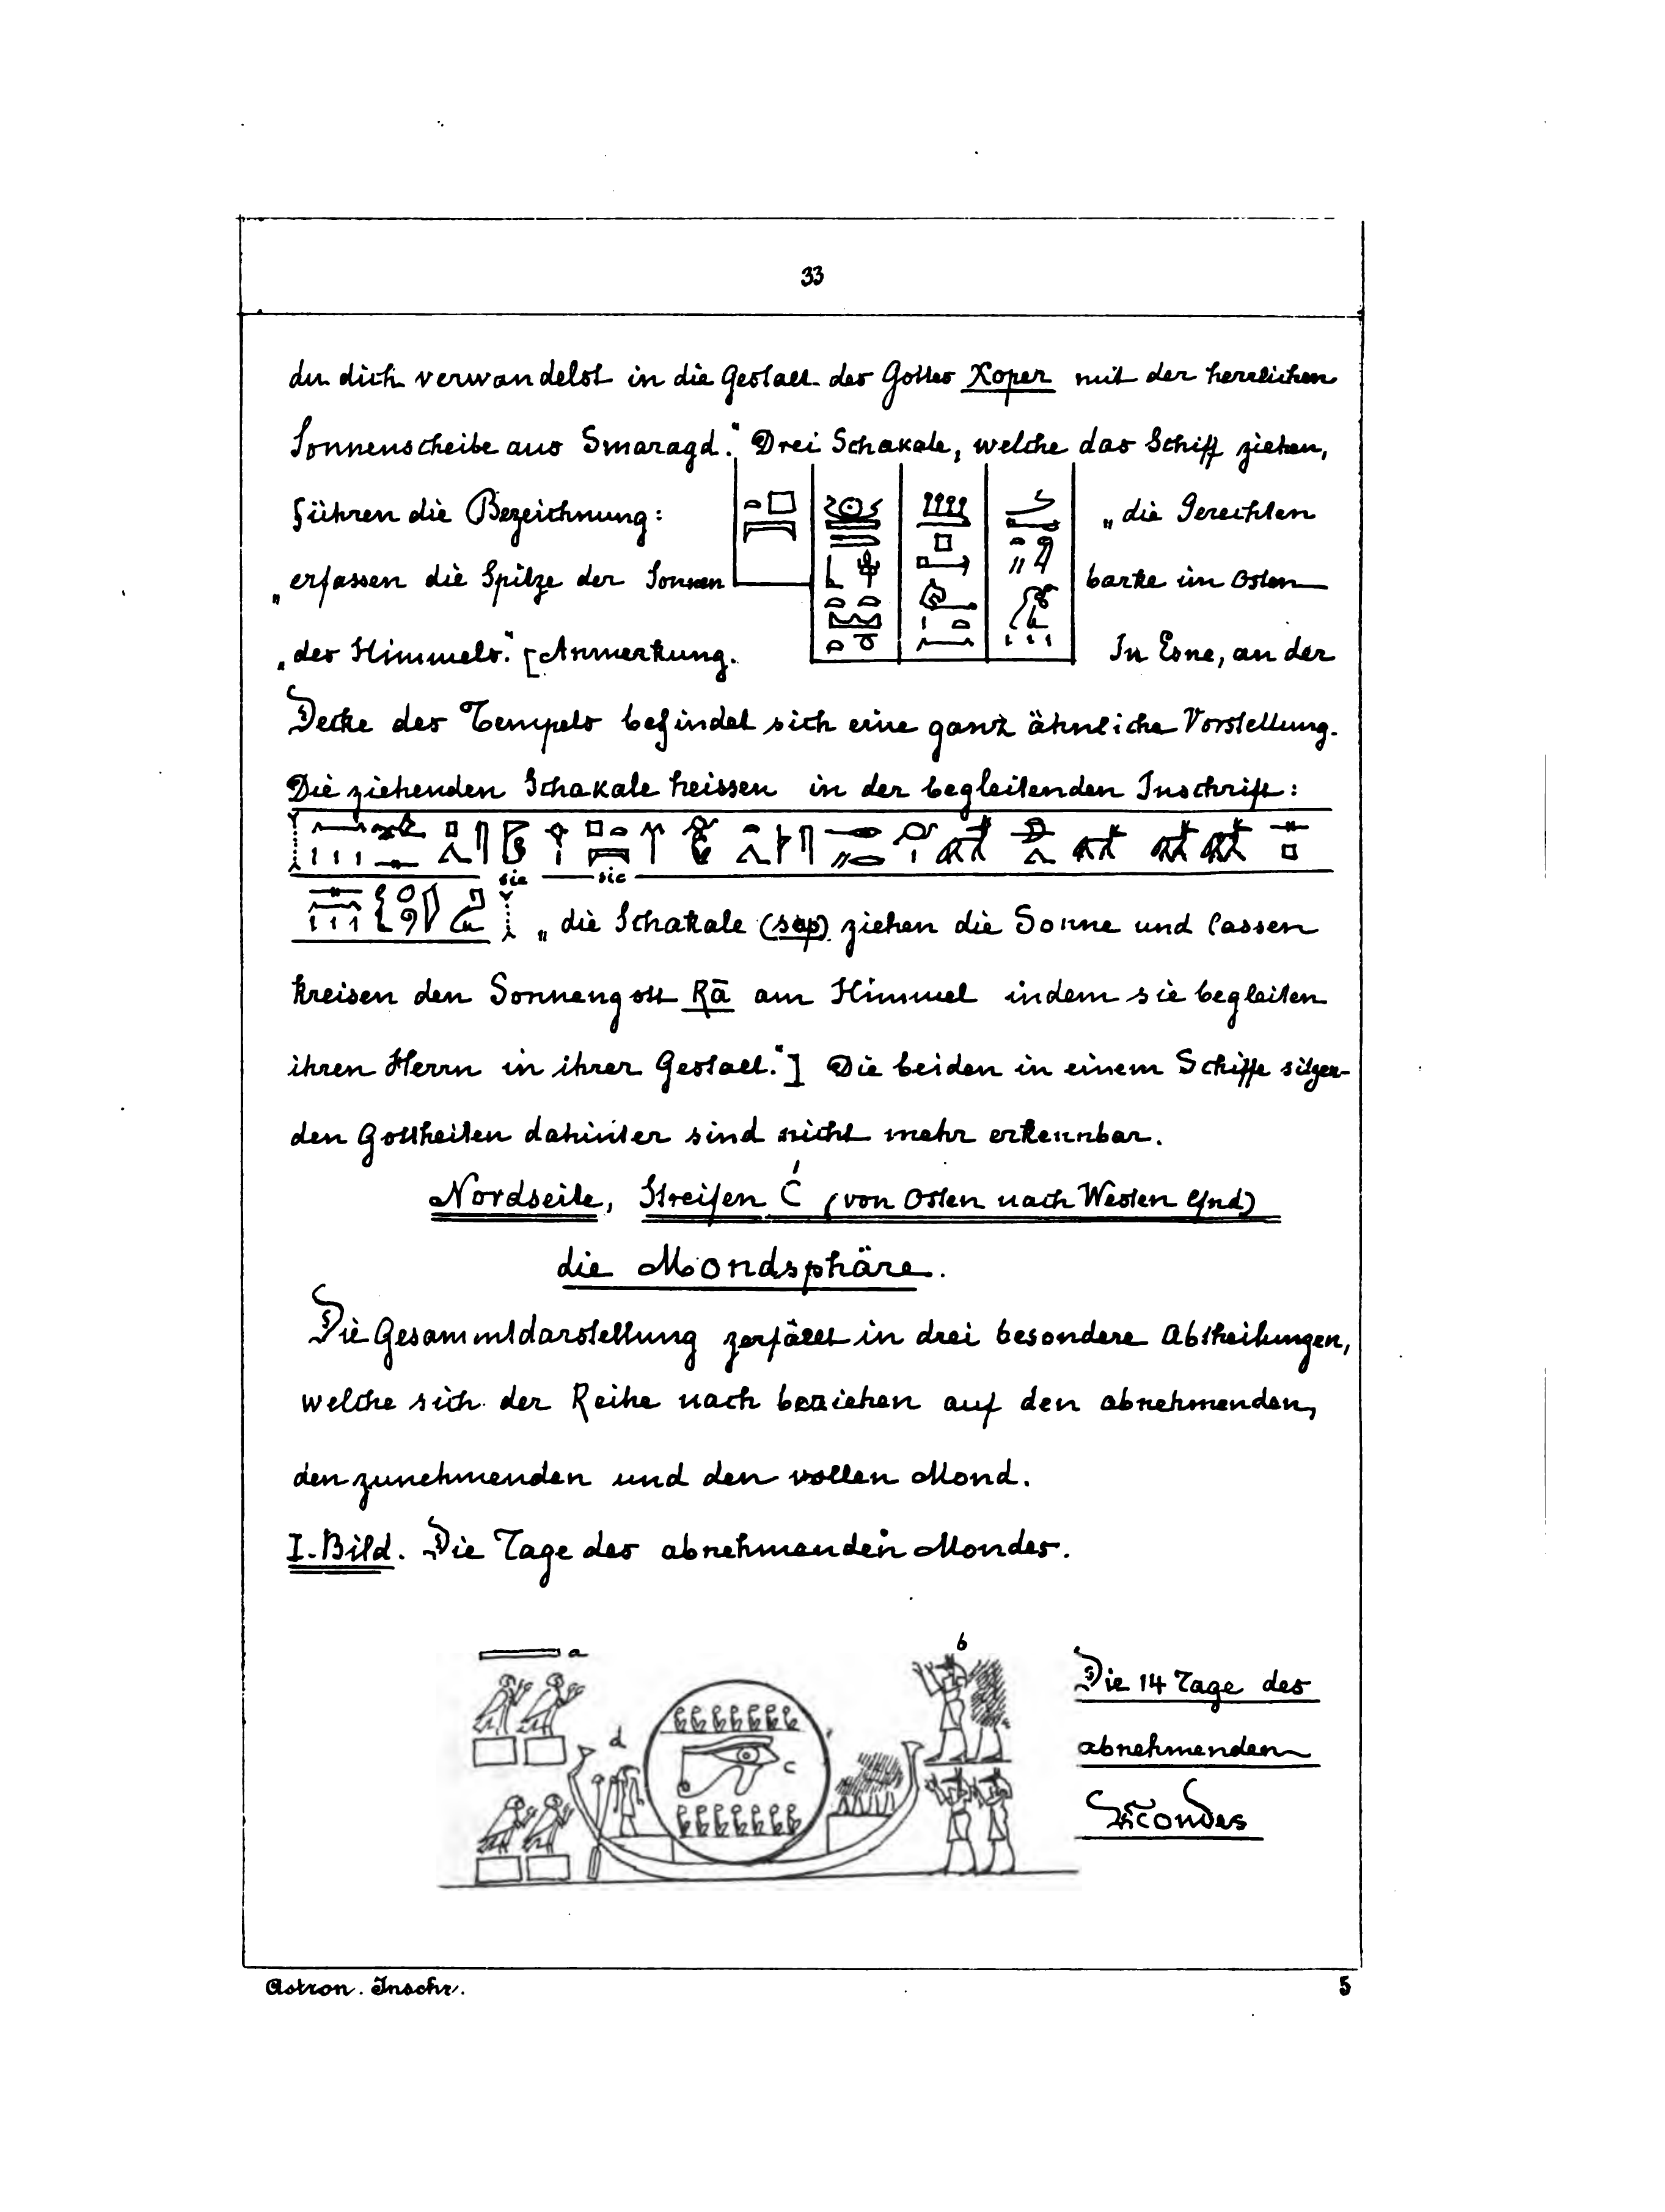 33
du dich verwandelst in die Gestalt des Gottes Xoper mit der herrlichen
Sonnenscheibe aus Smaragd.“ Drei Schakale, welche das Schiff ziehen,
führen die Bezeichnung: „die Gerechten
„erfassen die Spitze der Sonnen barke im Osten
„des Himmels.“ [Anmerkung. In Esne, an der
Decke des Tempels befindet sich eine ganz ähnliche Vorstellung.
Die ziehenden Schakale heissen in der begleitenden Inschrift:
sic sic
„die Schakale (sap) ziehen die Sonne und lassen
kreisen den Sonnengott Rā am Himmel indem sie begleiten
ihren Herrn in ihrer Gestalt.“] Die beiden in einem Schiffe sitzen-
den Gottheiten dahinter sind nicht mehr erkennbar.
Nordseite, Streifen Ć (von Osten nach Westen hin)
die Mondsphäre.
Die Gesammtdarstellung zerfällt in drei besondere Abtheilungen,
welche sich der Reihe nach beziehen auf den abnehmenden,
den zunehmenden und den vollen Mond.
I. Bild. Die Tage des abnehmenden Mondes.
a
b
d
c
Die 14 Tage des
abnehmenden
Mondes
Astron. Inschr. 5